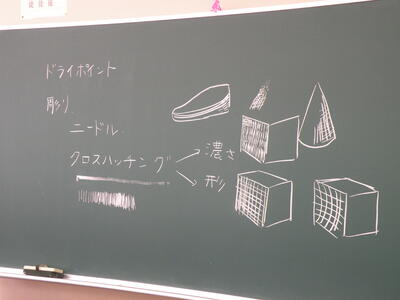 ドライポイント
彫り
ニードル
クロスハッチング
濃さ
形